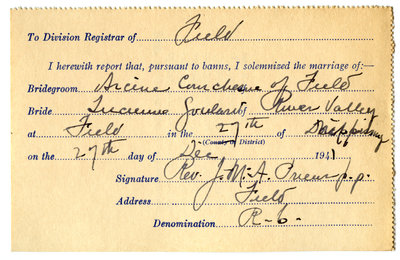 To Division Registrar of Field
I herewith report that, pursuant to banns, I solemnized the marriage of:—
Bridegroom Arcine of Field
Bride Lucienne Goulard of River Valley
at Field in the 27th of
(County or District)
on the 27th day of Dec 1941
Signature Rev. J. M. A. p.p.
Address Field
Denomination R-C-